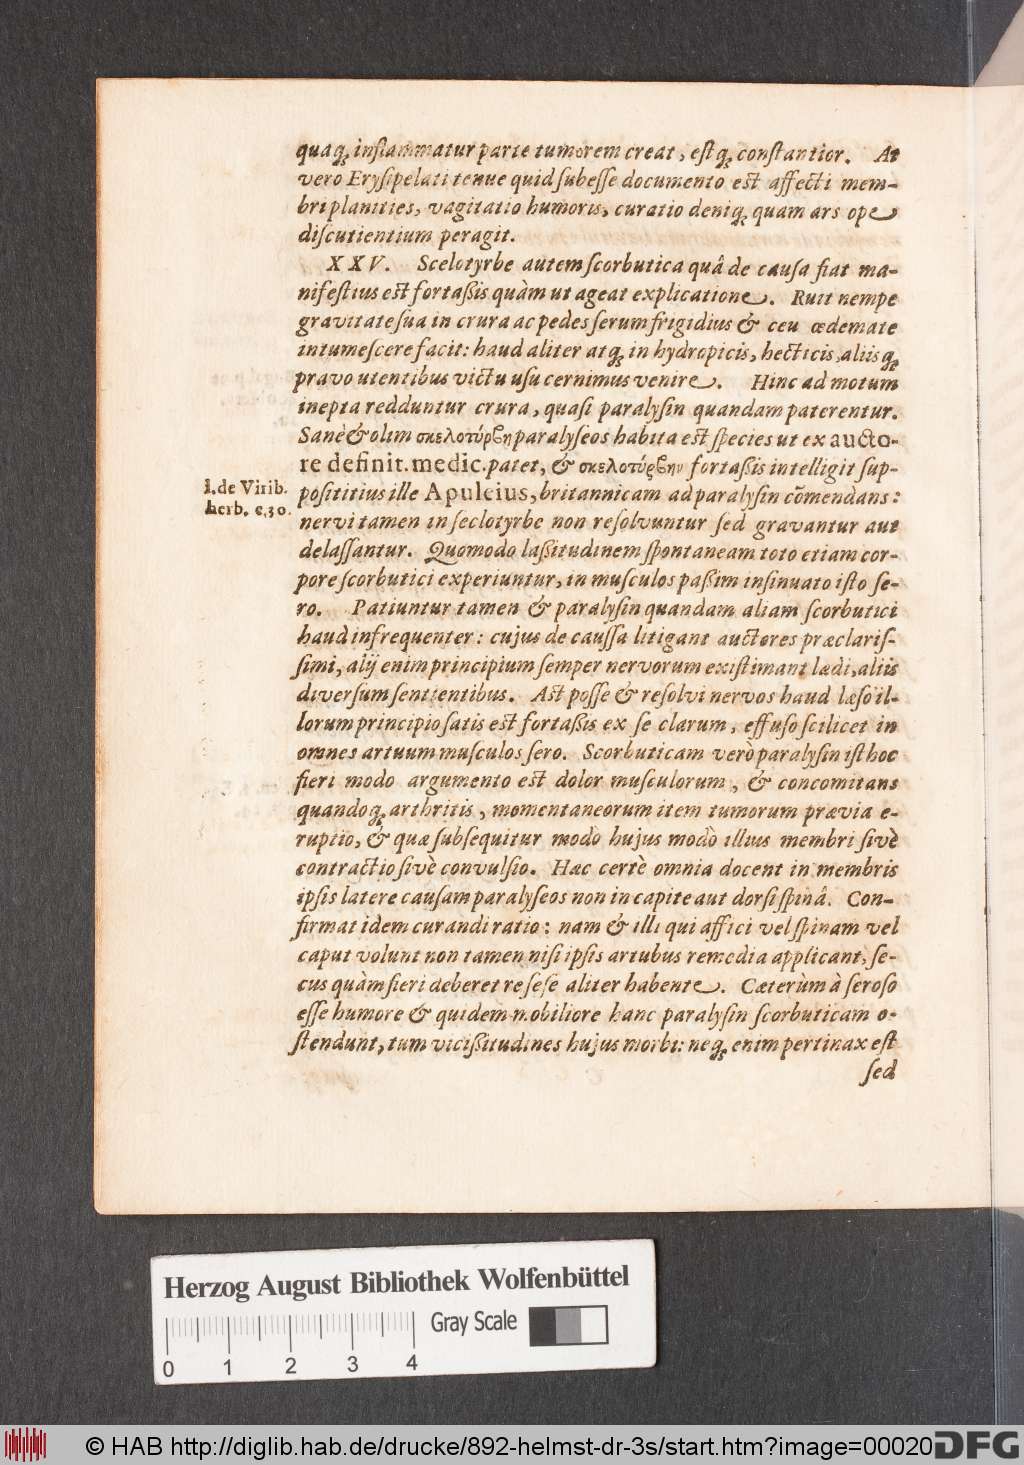 quaq; inflammatur parte tumorem creat, estq; constantior. At
vero Erysipelati tenue quid subesse documento est affecti mem-
bri planities, vagitatio humoris, curatio deniq; quam ars ope
discutientium peragit.
XXV. Scelotyrbe autem scorbutica quâ de causa fiat ma-
nifestius est fortaßis quàm ut ageat explicatione. Ruit nempe
gravitate sua in crura ac pedes serum frigidius & ceu œdemate
intumescere facit: haud aliter atq; in hydropicis, hecticis, aliisq;
pravo utentibus victu usu cernimus venire. Hinc ad motum
inepta redduntur crura, quasi paralysin quandam paterentur.
Sanè & olim σκελοτύρβη paralyseos habita est species ut ex aucto-
re definit. medic. patet, & σκελοτύρβην fortaßis intelligit sup-
posititius ille Apuleius, britannicam ad paralysin cōmendans:
l. de Virib.
herb. c. 30.
nervi tamen in seclotyrbe non resolvuntur sed gravantur aut
delassantur. Quomodo laßitudinem spontaneam toto etiam cor-
pore scorbutici experiuntur, in musculos paßim insinuato isto se-
ro. Patiuntur tamen & paralysin quandam aliam scorbutici
haud infrequenter: cujus de caussa litigant auctores præclaris-
simi, alij enim principium semper nervorum existimant lædi, aliis
diversum sentientibus. Ast posse & resolvi nervos haud læso il-
lorum principio satis est fortaßis ex se clarum, effuso scilicet in
omnes artuum musculos sero. Scorbuticam verò paralysin isthoc
fieri modo argumento est dolor musculorum, & concomitans
quandoq; arthritis, momentaneorum item tumorum prævia e-
ruptio, & quæ subsequitur modo hujus modò illius membri sivè
contractio sivè convulsio. Hæc certè omnia docent in membris
ipsis latere causam paralyseos non in capite aut dorsi spinâ. Con-
firmat idem curandi ratio: nam & illi qui affici vel spinam vel
caput volunt non tamen nisi ipsis artubus remedia applicant, se-
cus quàm fieri deberet re sese aliter habente. Cæterùm à seroso
esse humore & quidem mobiliore hanc paralysin scorbuticam o-
stendunt, tum vicißitudines hujus morbi: neq; enim pertinax est
sed
Herzog August Bibliothek Wolfenbüttel
Gray Scale
0 1 2 3 4
© HAB http://diglib.hab.de/drucke/892-helmst-dr-3s/start.htm?image=00020
DFG